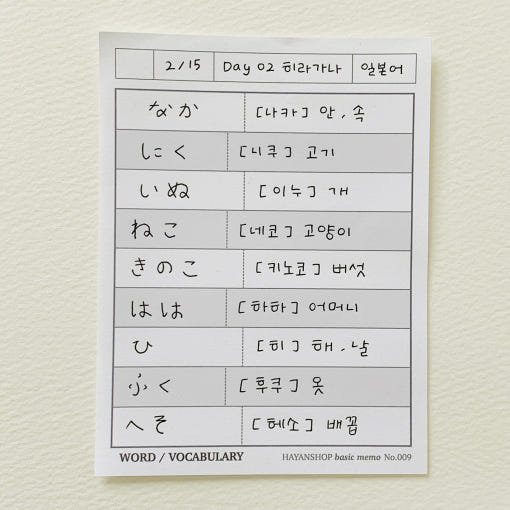 2/15 Day 02 히라가나 일본어
なか [나카] 안, 속
にく [니쿠] 고기
いぬ [이누] 개
ねこ [네코] 고양이
きのこ [키노코] 버섯
はは [하하] 어머니
ひ [히] 해, 날
ふく [후쿠] 옷
へそ [헤소] 배꼽
WORD / VOCABULARY HAYANSHOP basic memo No.009